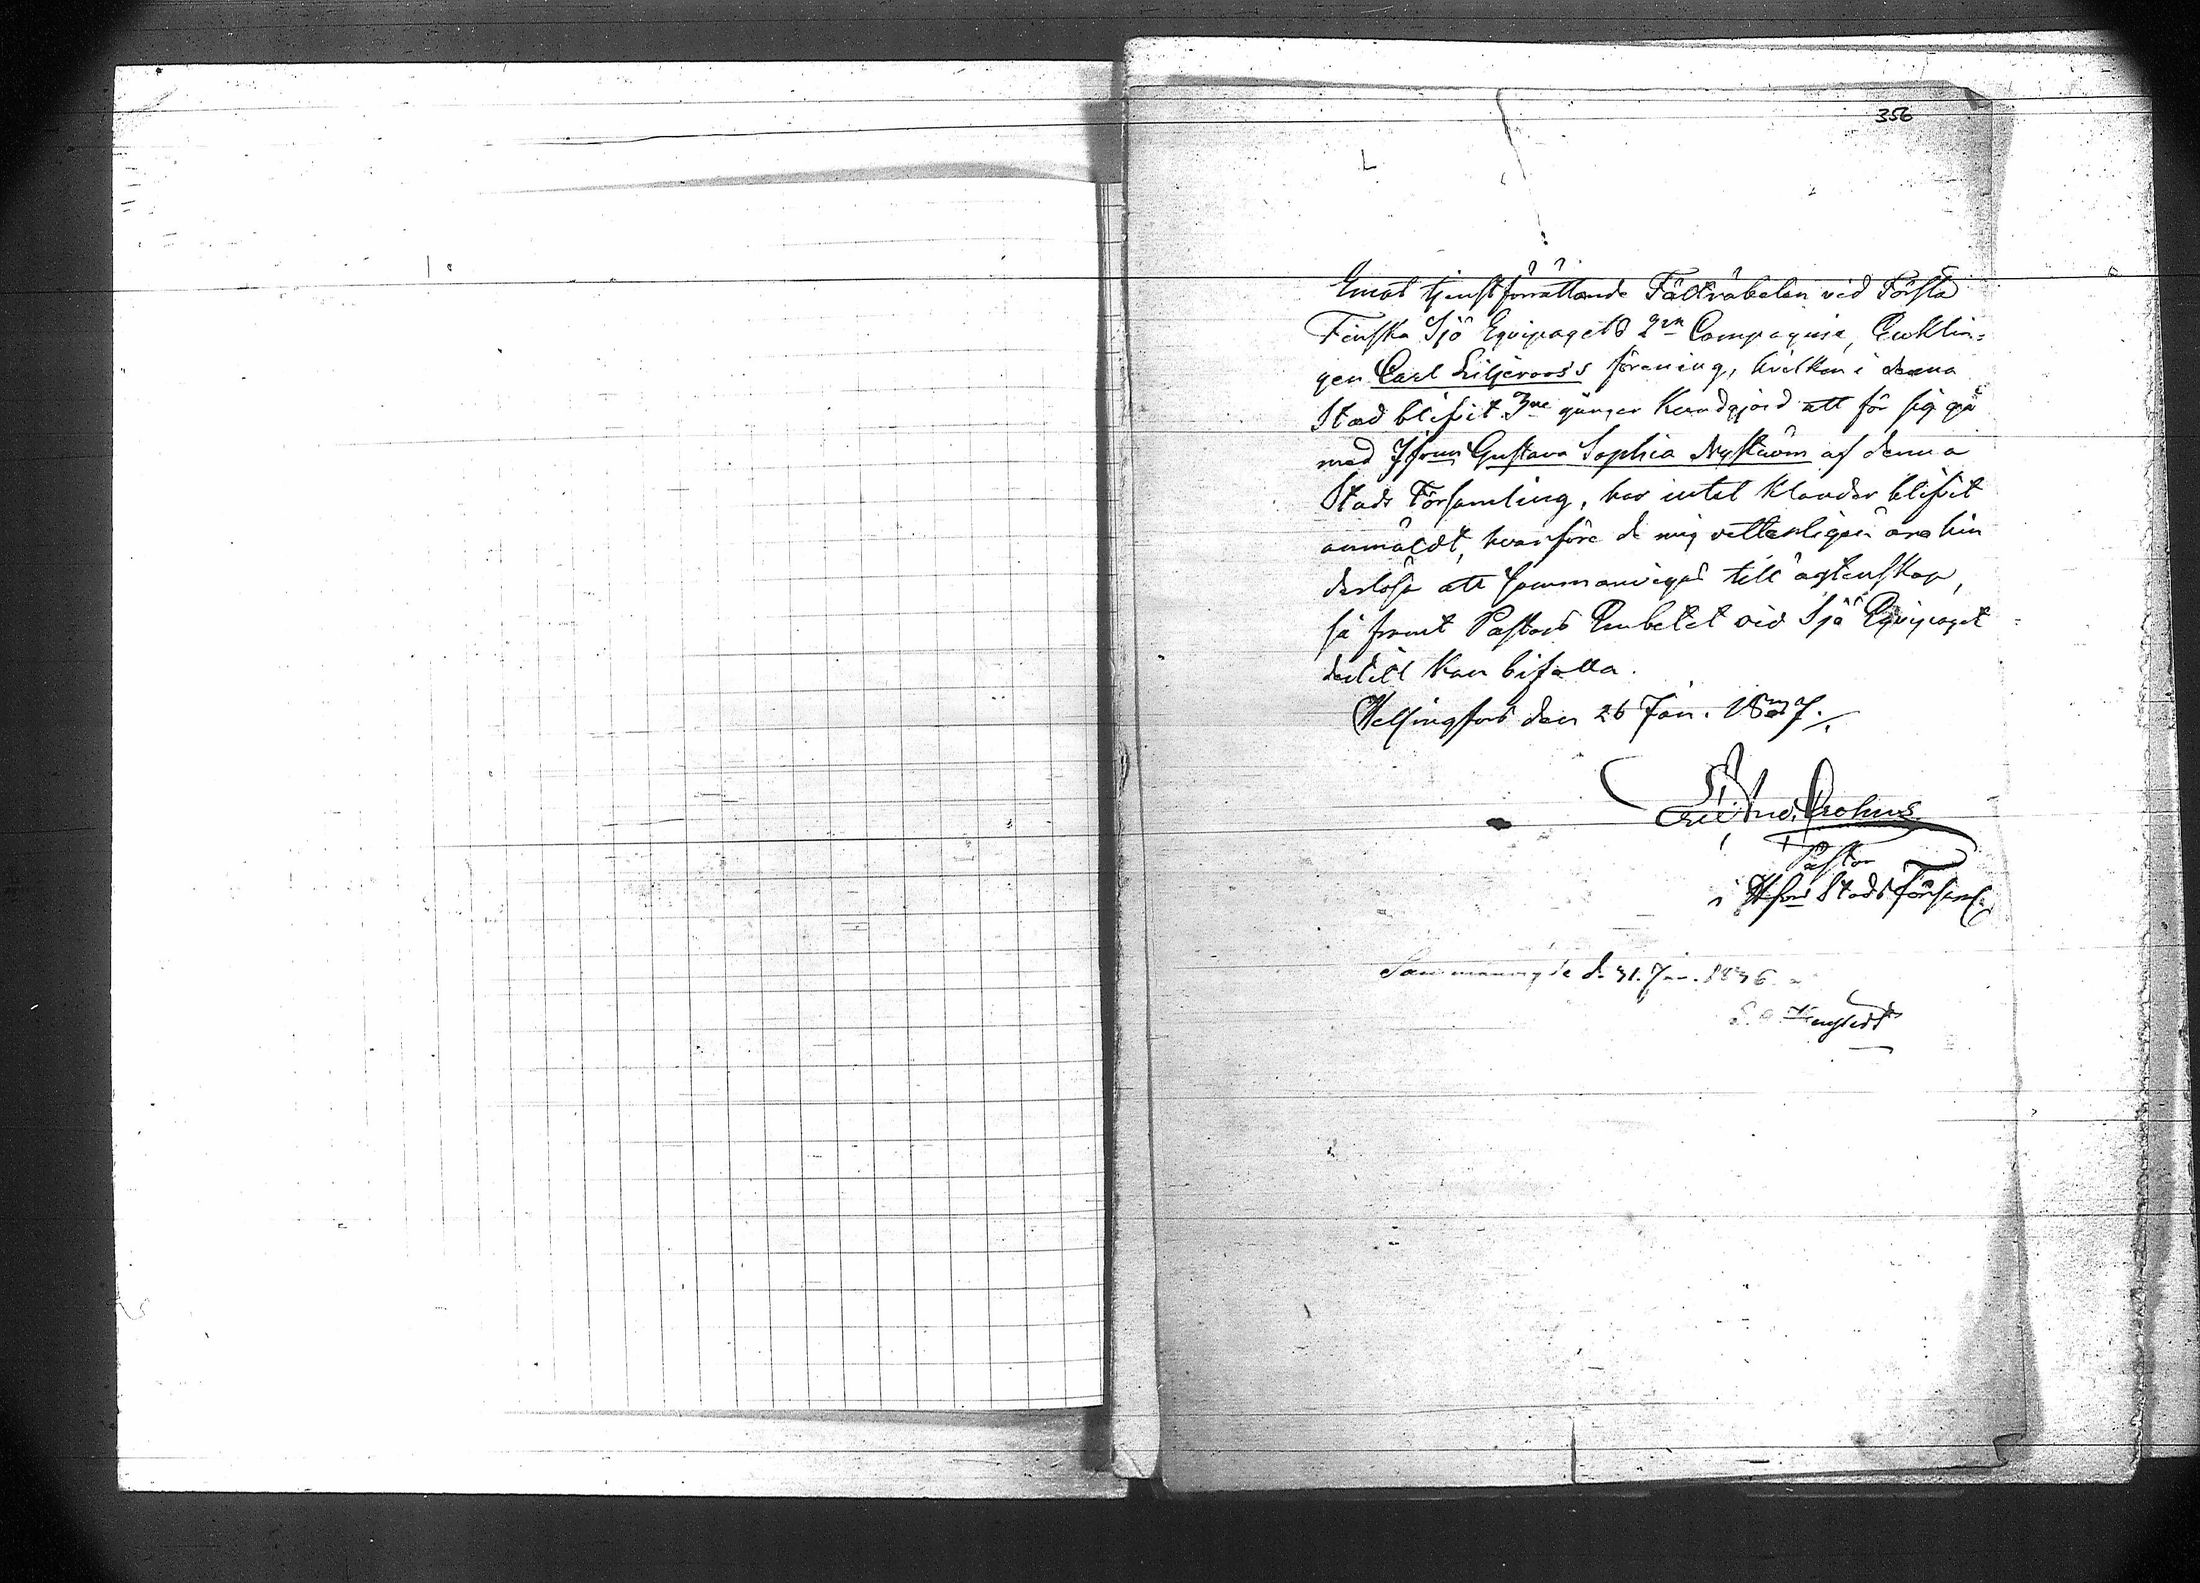 356
Emot tjenstförrättande Fältväbelen vid Första
Finska Sjö Equipagets 2dra Compagnie, Enklin-
gen Carl Liljeroos's förening, hvilken i denna
Stad blifvit 3ne gånger kundgjord att för sig gå
med Jfrun Gustava Sophia Nyström af denna
Stads Församling, har intet klander blifvit
anmäldt, hvarföre de mig vetterligen äro hin
derlösa att sammanvigas till ägtenskap,
så framt Pastors Embetet vid Sjö Equipaget
dertill kan bifalla.
Helsingfors den 26 Jan. 1837.
And. Crohns
Pastor
i Hfors Stads Församl.
Sammanvigde d. 31. Jan. 1836